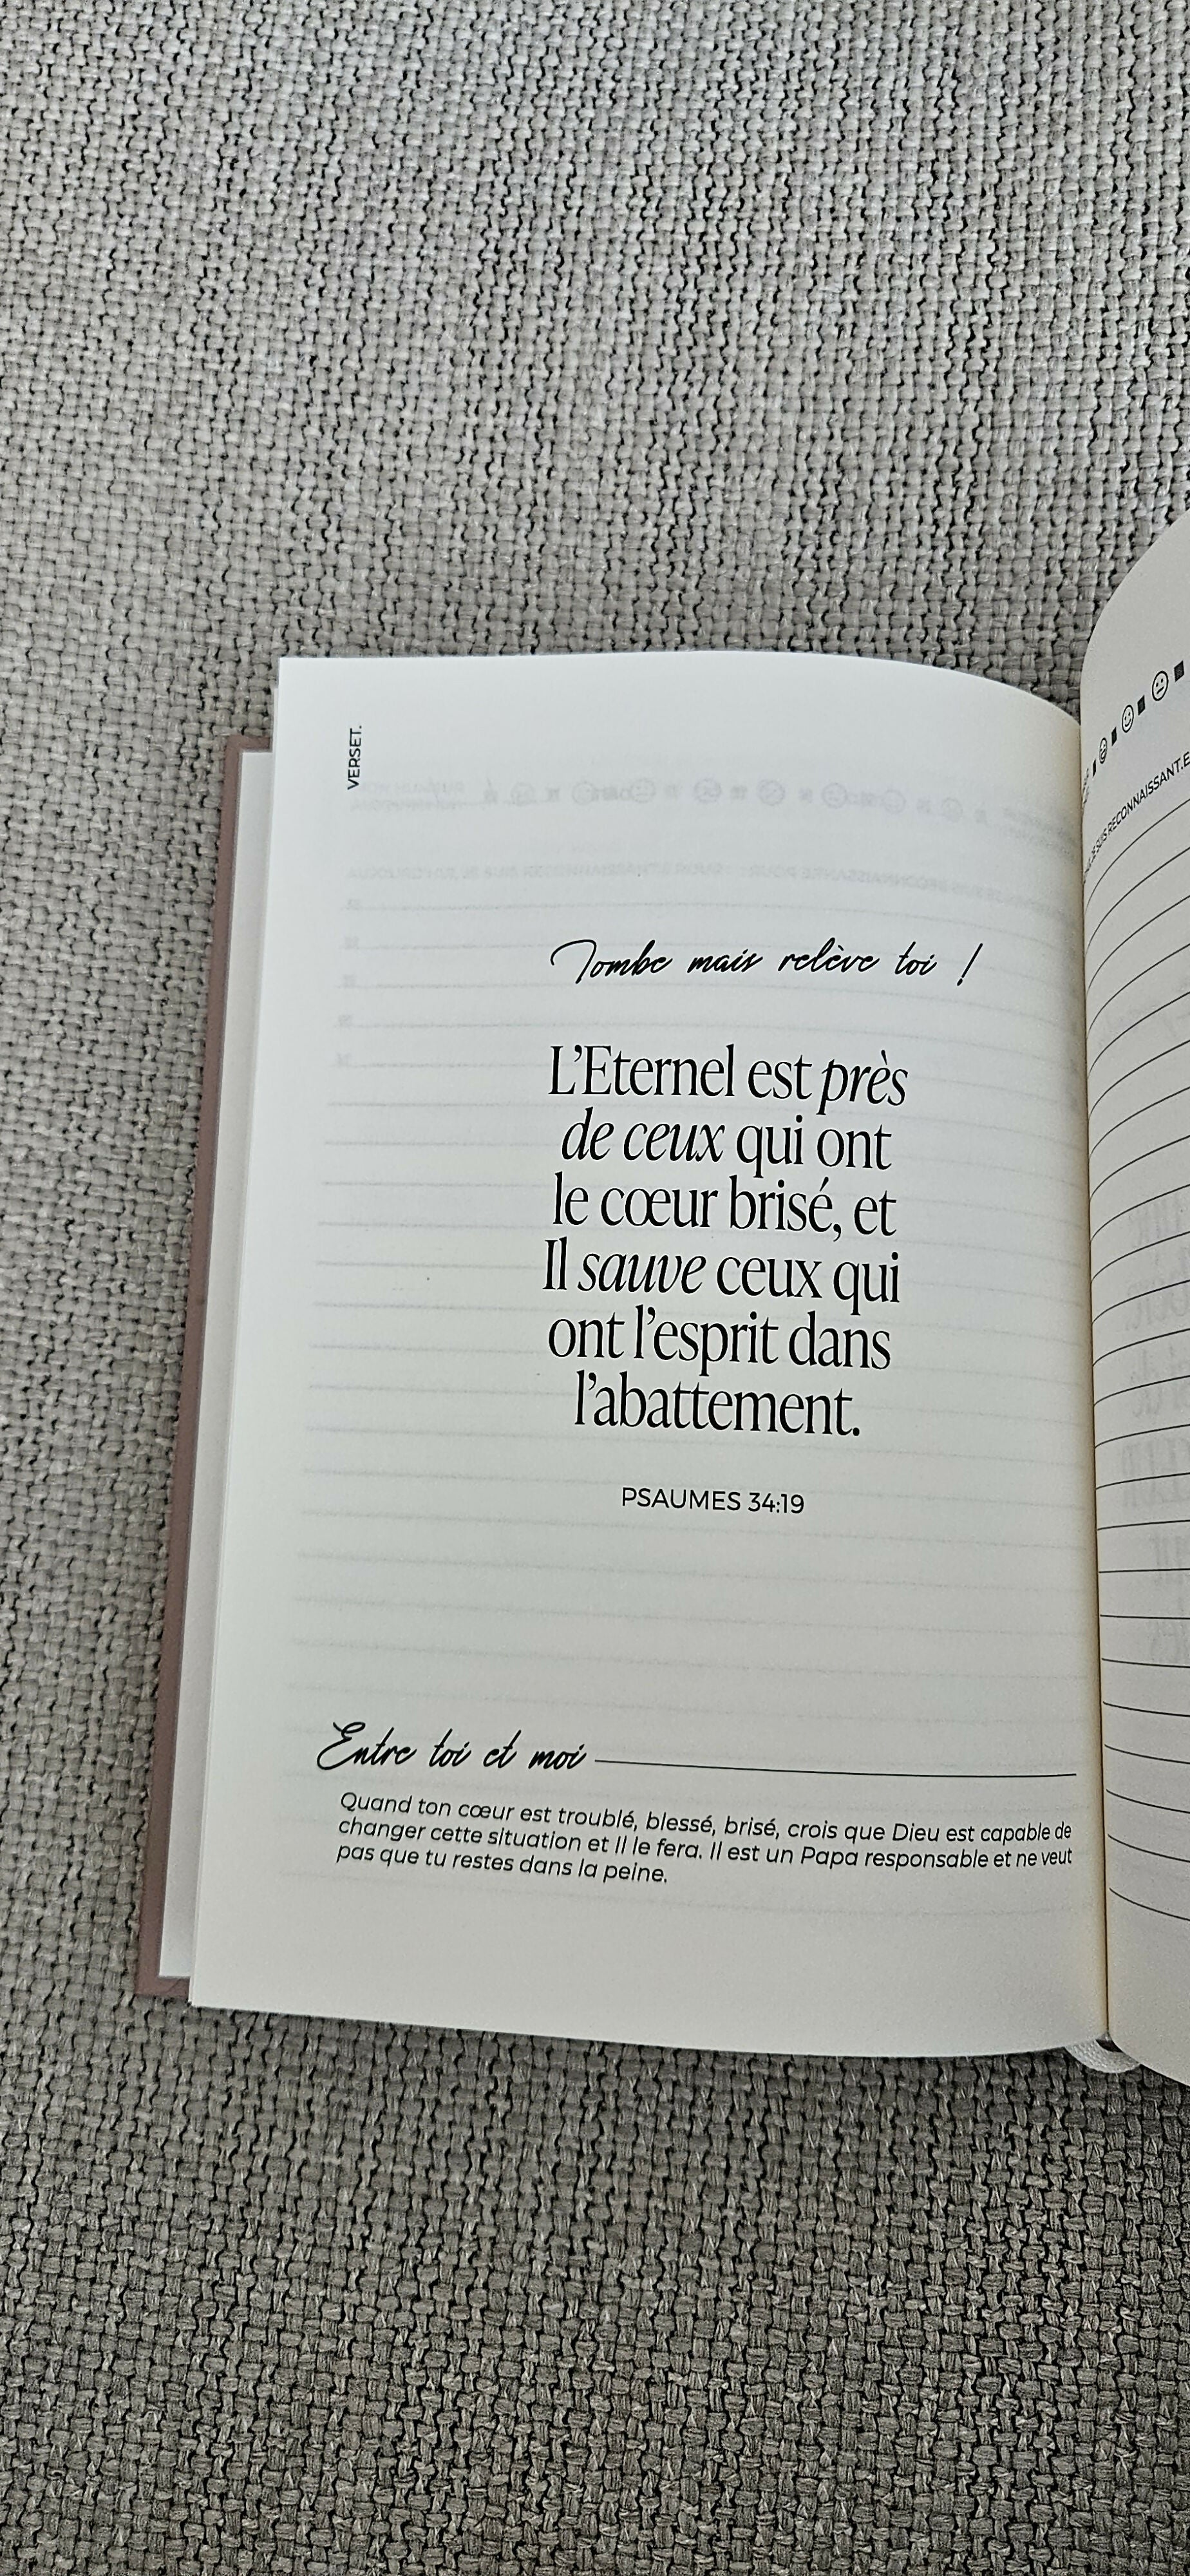 VERSET.
Tombe mais relève toi !
L'Eternel est près
de ceux qui ont
le cœur brisé, et
Il sauve ceux qui
ont l'esprit dans
l'abattement.
PSAUMES 34:19
Entre toi et moi
Quand ton cœur est troublé, blessé, brisé, crois que Dieu est capable de
changer cette situation et Il le fera. Il est un Papa responsable et ne veut
pas que tu restes dans la peine.
RECONNAISSANT.E